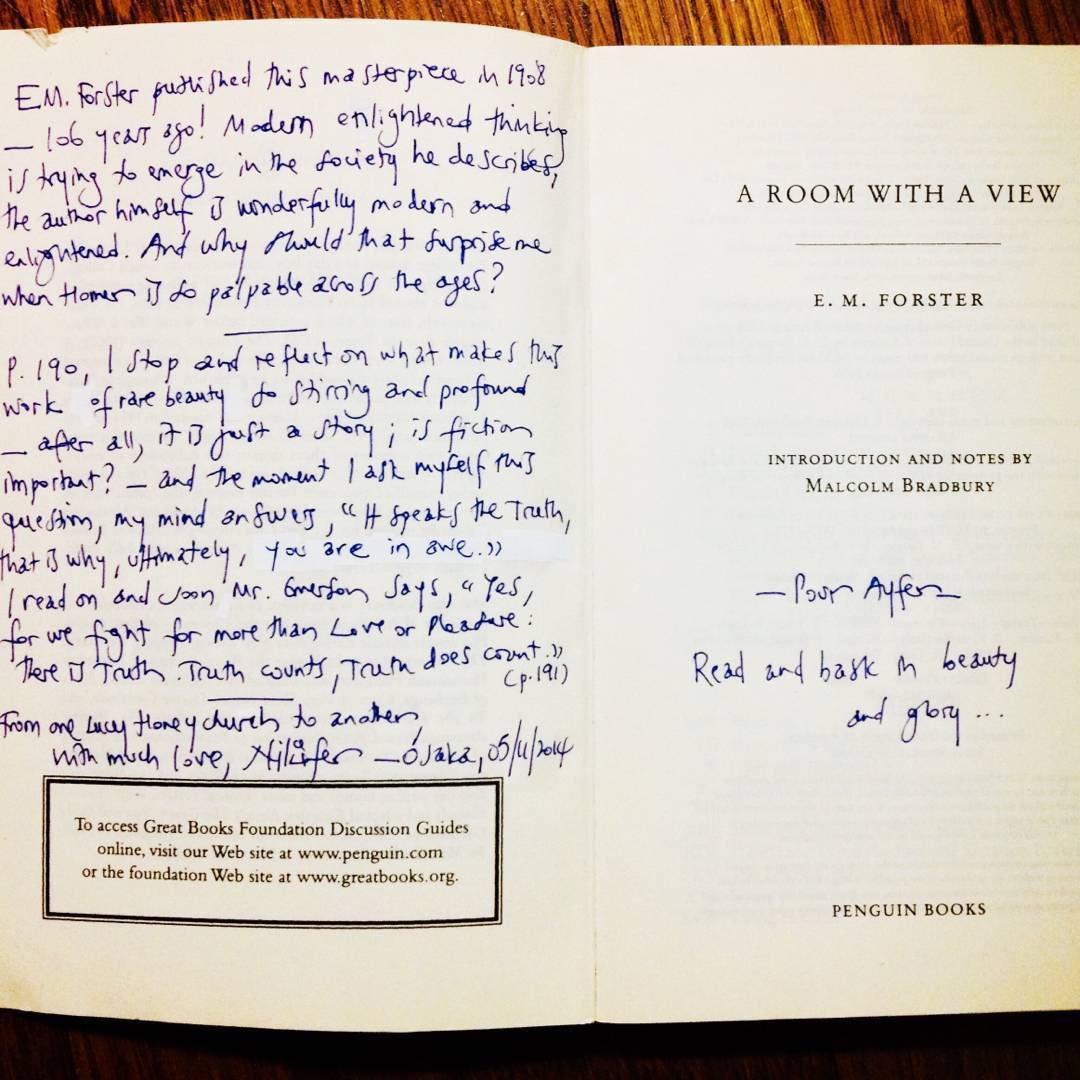 E.M. Forster published this masterpiece in 1908
— 106 years ago! Modern enlightened thinking
is trying to emerge in the society he describes,
the author himself is wonderfully modern and
enlightened. And why should that surprise me
when Homer is so palpable across the ages?
P. 190, I stop and reflect on what makes this
work of rare beauty so stirring and profound
— after all, it is just a story; is fiction
important? — and the moment I ask myself this
question, my mind answers, “It speaks the Truth,
that is why, ultimately, you are in awe.”
I read on and soon Mr. Emerson says, “Yes,
for we fight for more than Love or Pleasure:
there is Truth. Truth counts, Truth does count.”
(p.191)
From one Lucy Honeychurch to another,
with much love, Nilüfer — Osaka, 05/11/2014
To access Great Books Foundation Discussion Guides
online, visit our Web site at www.penguin.com
or the foundation Web site at www.greatbooks.org.
A ROOM WITH A VIEW
E. M. FORSTER
INTRODUCTION AND NOTES BY
MALCOLM BRADBURY
— Pour Ayfer —
Read and bask in beauty
and glory ...
PENGUIN BOOKS